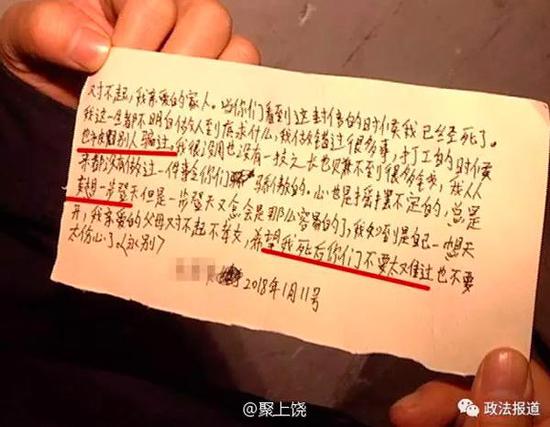 对不起,我亲爱的家人。当你们看到这封信的时候我已经死了。
我这一生都不明白做人到底求什么,我做错过很多事,打工的时候
也被别人骗过。我很没用也没有一技之长也见赚不到很多金多,我从
来都没有做过一件事令你们骄傲的。心也是摇摆不定的,总是
想一步登天但是一步登天又怎会是那么容易的了,我知到是自己想天
开,我亲爱的父母对不起不孝女,希望我死后你们不要太难过也不要
太伤心了。(永别)
2018年1月11号
@聚上饶
政法报道